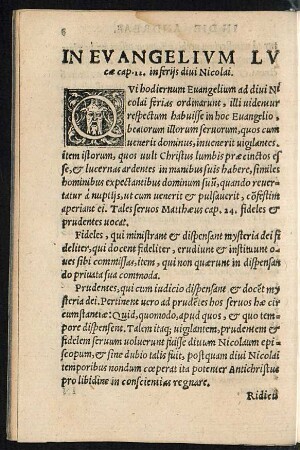 6
IN EVANGELIVM LV
cæ cap. 12. in ferijs diui Nicolai.
QVi hodiernum Euangelium ad diui Ni
colai ferias ordinarunt, illi uidentur
respectum habuisse in hoc Euangelio,
beatorum illorum seruorum, quos cum
uenerit dominus, inuenerit uigilantes,
item istorum, quos uult Christus lumbis præcinctos es
se, & lucernas ardentes in manibus suis habere, similes
hominibus expectantibus dominum suũ, quando reuer-
tatur à nuptijs, ut cum uenerit & pulsauerit, cõfestim
aperiant ei. Tales seruos Matthæus cap. 24. fideles &
prudentes uocat.
Fideles, qui ministrant & dispensant mysteria dei fi
deliter, qui docent fideliter, erudiunt & instituunt o-
ues sibi commissas, item, qui non quærunt in dispensan
do priuata sua commoda.
Prudentes, qui cum iudicio dispensant & docet my
steria dei. Pertinent uero ad prudẽtes hos seruos hæ cir
cumstantiæ: Quid, quomodo, apud quos, & quo tem-
pore dispensent. Talem itaq; uigilantem, prudentem &
fidelem seruum uoluerunt fuisse diuum Nicolaum epi-
scopum, & sine dubio talis fuit, postquam diui Nicolai
temporibus nondum cœperat ita potenter Antichristus
pro libidine in conscientias regnare.
Ridicu